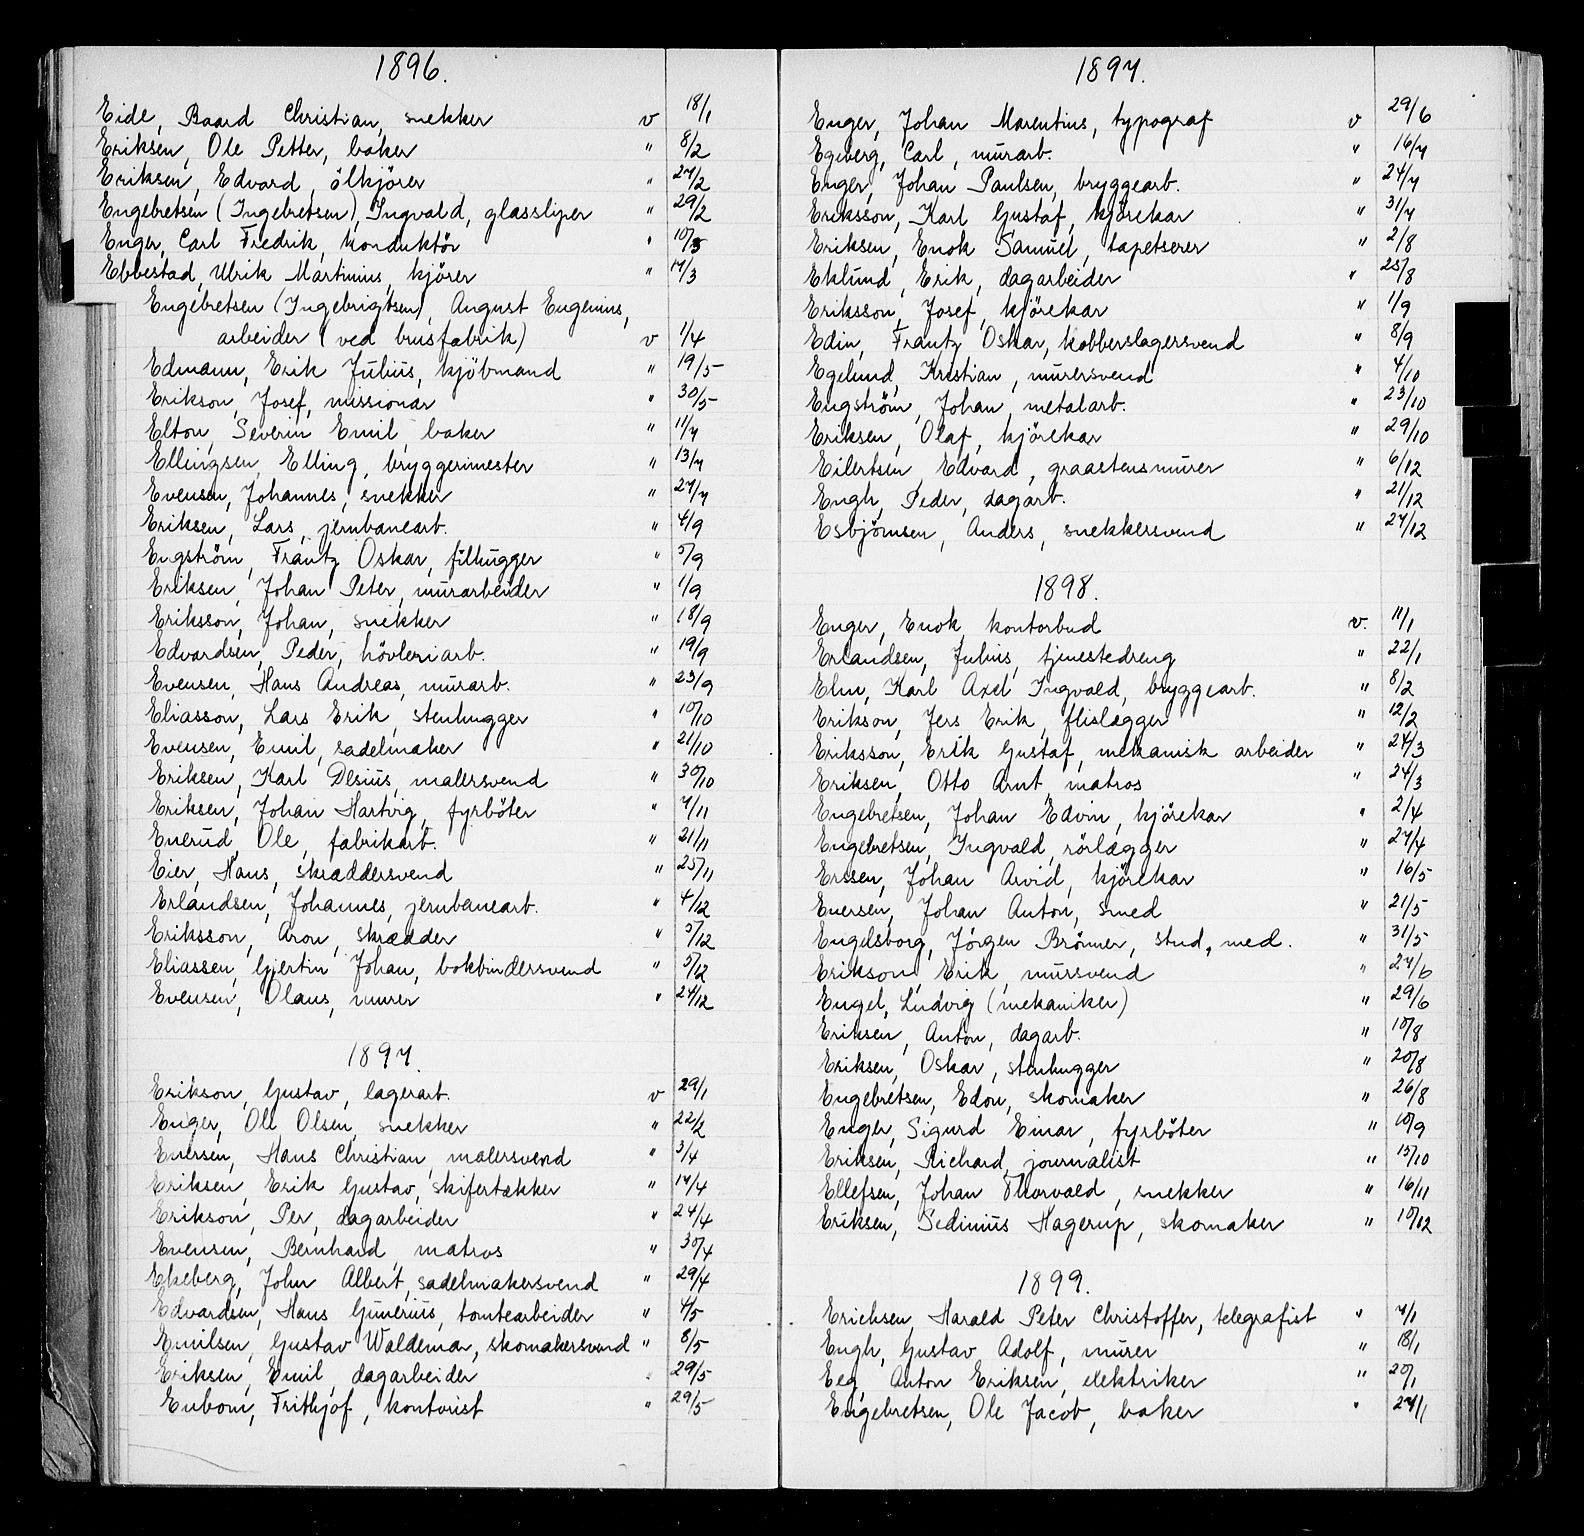 1896.
Eide, Baard Christian, snekker v 18/1
Eriksen, Ole Petter, baker " 8/2
Eriksen, Edvard, ölkjörer " 27/2
Engebretsen (Ingebretsen), Ingvald, glassliper " 29/2
Enger, Carl Fredrik, konduktör " 10/3
Ebbestad, Ulrik Martinius, kjörer " 17/3
Engebretsen (Ingebrigtsen), August Eugenius,
arbeider (ved brusfabrik) v 1/4
Edmann, Erik Julius, kjöbmand " 19/5
Erikson, Josef, missionær " 30/5
Elton, Severin Emil, baker " 11/7
Ellingsen, Elling, bryggerimester " 13/7
Evensen, Johannes, snekker " 27/7
Eriksen, Lars, jernbanearb. " 4/9
Engström, Frantz Oskar, filhugger " 5/9
Eriksen, Johan Peter, murarbeider " 1/9
Eriksson, Johan, snekker " 18/9
Edvardsen, Peder, hövleriarb. " 19/9
Evensen, Hans Andreas, murarb. " 23/9
Eliasson, Lars Erik, stenhugger " 10/10
Evensen, Emil, sadelmaker " 21/10
Eriksen, Karl Desius, malersvend " 30/10
Eriksen, Johan Hartvig, fyrböter " 7/11
Enerud, Ole, fabrikarb. " 21/11
Eier, Hans, skræddersvend " 25/11
Erlandsen, Johannes, jernbanearb. " 4/12
Eriksson, Aron, skrædder " 5/12
Eliassen, Gjertin Johan, bokbindersvend " 5/12
Evensen, Olaus, murer " 24/12
1897.
Erikson, Gustav, lagerarb. v 29/1
Enger, Ole Olsen, snekker " 22/2
Enersen, Hans Christian, malersvend " 3/4
Eriksen, Erik Gustav, skifertækker " 14/4
Erikson, Per, dagarbeider " 24/4
Evensen, Bernhard, matros " 30/4
Ekeberg, John Albert, sadelmakersvend " 29/4
Edvardsen, Hans Gunerius, tomtearbeider " 4/5
Emilsen, Gustav Waldemar, skomakersvend " 8/5
Eriksen, Emil, dagarbeider " 29/5
Enbom, Frithjof, kontorist " 29/5
1897.
Enger, Johan Marentius, typograf v 29/6
Egeberg, Carl, murarb. " 16/7
Enger, Johan Paulsen, bryggearb. " 24/7
Eriksson, Karl Gustaf, kjörekar " 31/7
Eriksen, Enok Samuel, tapetserer " 2/8
Eklund, Erik, dagarbeider " 25/8
Eriksson, Josef, kjörekar " 1/9
Edin, Frantz Oskar, kobberslagersvend " 8/9
Egelund, Kristian, murersvend " 4/10
Engström, Johan, metalarb. " 23/10
Eriksen, Olaf, kjörekar " 29/10
Eilertsen, Edvard, graastensmurer " 6/12
Engh, Peder, dagarb. " 21/12
Esbjörnsen, Anders, snekkersvend " 27/12
1898.
Enger, Enok, kontorbud v. 11/1
Erlandsen, Julius, tjenestedreng " 22/1
Elm, Karl Axel Ingvald, bryggearb. " 8/2
Erikson, Jers Erik, flislægger " 12/2
Eriksson, Erik Gustaf, mekanisk arbeider " 24/3
Eriksen, Otto Arnt, matros " 24/3
Engebretsen, Johan Edvin, kjörekar " 2/4
Engebretsen, Ingvald, rörlægger " 27/4
Erssen, Johan Arvid, kjörekar " 16/5
Enersen, Johan Anton, smed " 21/5
Engelsborg, Jörgen Brömer, stud. med. " 31/5
Erikson, Erik, mursvend " 27/6
Engel, Ludvig (mekaniker) " 29/6
Eriksen, Anton, dagarb. " 10/8
Eriksen, Oskar, stenhugger " 20/8
Engebretsen, Edon, skomaker " 26/8
Enger, Sigurd Einar, fyrböter " 10/9
Eriksen, Richard, journalist " 15/10
Ellefsen, Johan Thorvald, snekker " 16/11
Eriksen, Sedinius Hagerup, skomaker " 10/12
1899.
Erichsen, Harald Peter Christoffer, telegrafist " 7/1
Engh, Gustav Adolf, murer " 18/1
Eeg, Anton Eriksen, elektriker " 20/1
Engebretsen, Ole Jacob, baker " 27/1